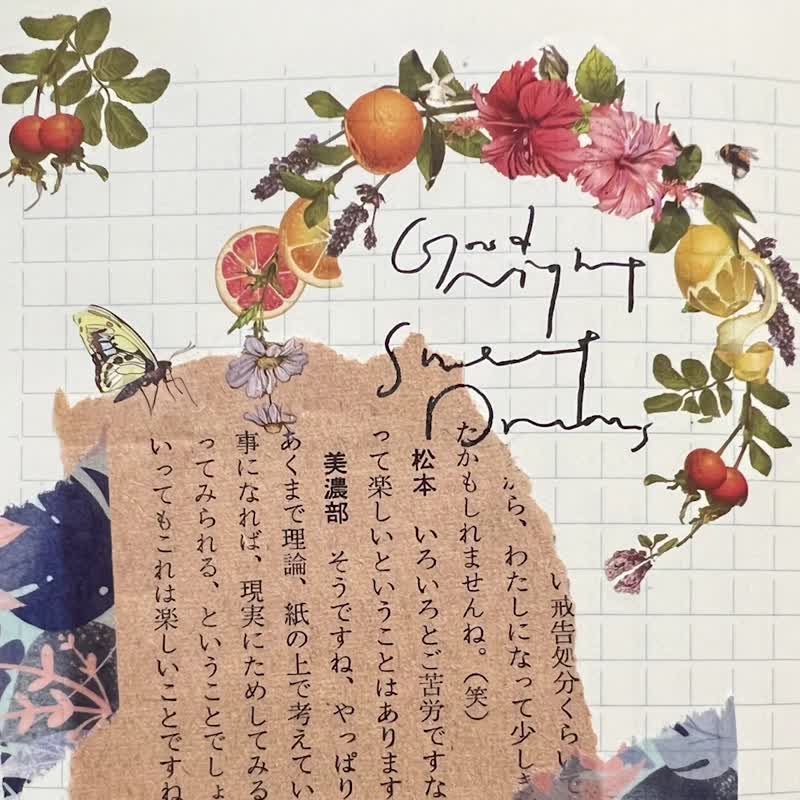 Good
night
Sweet
Dreams
い戒告処分くらい
から、わたしになって少し
たかもしれませんね。(笑)
松本　いろいろとご苦労ですな
って楽しいということはあります
美濃部　そうですね、やっぱり
あくまで理論、紙の上で考えてい
事になれば、現実にためしてみる
ってみられる、ということでしょ
いってもこれは楽しいことですね